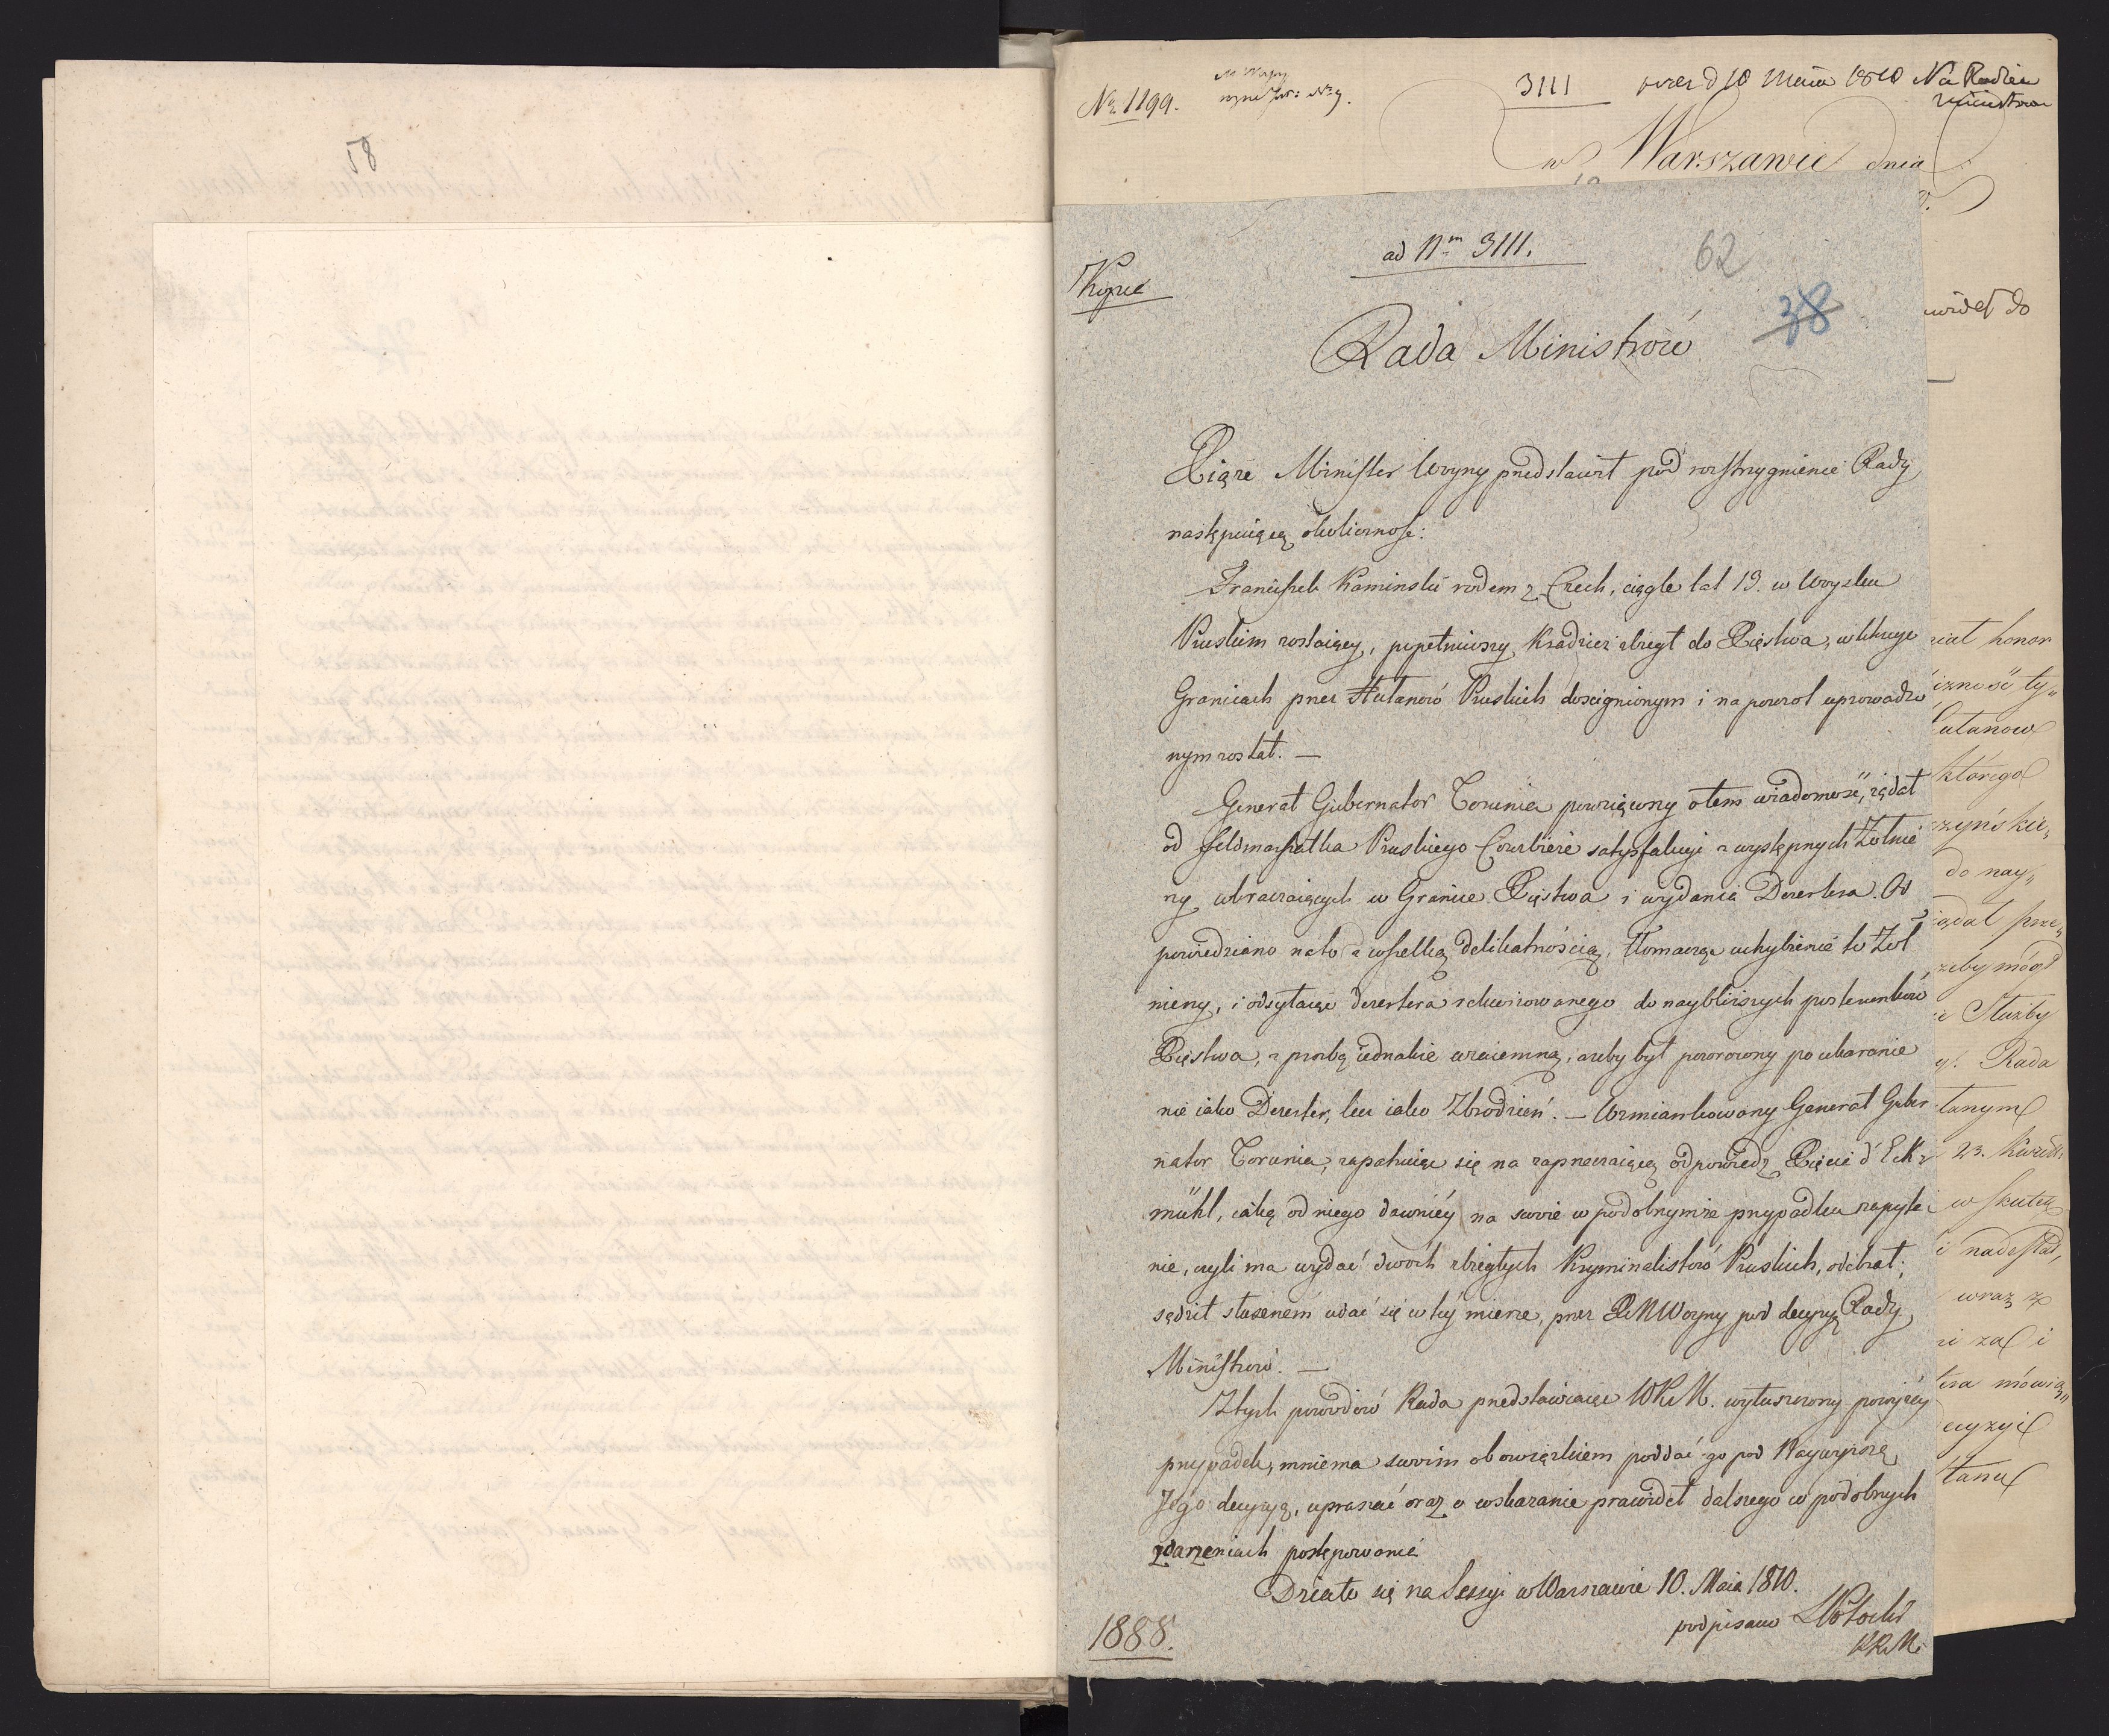 58
Nr. 1199.
3111
10 Maia 1810 Na Radzie
w Warszawie dnia
ad Nm 3111.
62
38
Kopia
Rada Ministrów
Xiąże Minister Woyny przedstawił pod rozstrzygnienie Rady
następuiącą okoliczność:
Franciszek Kaminski rodem z Czech, ciągle lat 19. w Woysku
Pruskim zostaiący, popełniwszy Kradzież zbiegł do Xięstwa, w którego
Granicach przez Hułanów Pruskich doscignionym i na powrot uprowadzo
nym został. —
Generał Gubernator Torunia powziąwszy o tem wiadomość, żądał
od Feldmarszałka Pruskiego Courbiere satysfakcyi z występnych Żołnie
rzy wkraczaiących w Granice Xięstwa i wydania Dezertera. Od
powiedziano na to z wszelką delikatnością, tłomacząc uchybienie to Żoł
nierzy, i odsyłaiąc dezertera rekwirowanego do naybliższych posterunków
Xięstwa, z prozbą iednakie wzaiemną, ażeby był powrocony po ukaranie
nie iako Dezerter, lecz iako Zbrodzień. — Wzmiankowany Generał Guber
nator Torunia, zapatruiąc się na zaprzeczaiącą odpowiedź Xięcia d'Eck
mühl, iaką od niego dawniéy na swoie w podobnymże przypadku zapyta
nie, czyli ma wydać dwóch zbiegłych Kryminalistów Pruskich, odebrał;
sądził słusznem udać się w téy mierze, przez XMWoyny pod decyzyą Rady
Ministrów. —
Z tych powodów Rada przedstawiaiąc WKM. wyłuszczony powyżéy
przypadek, mniema swoim obowiązkiem poddać go pod Naywyższą
Jego decyzyą, upraszać oraz o wskazanie prawideł dalszego w podobnych
zdarzeniach postępowania
Działo się na Sessyi w Warszawie 10. Maia 1810.
podpisano S Potocki
P.R.M.
1888.
wideł do
honor
ty„
ułanow
którego
do nay„
żeby mógł
Służby
Rada
23.
w skutek
wraz z
za i
mówią„
ecyzyi